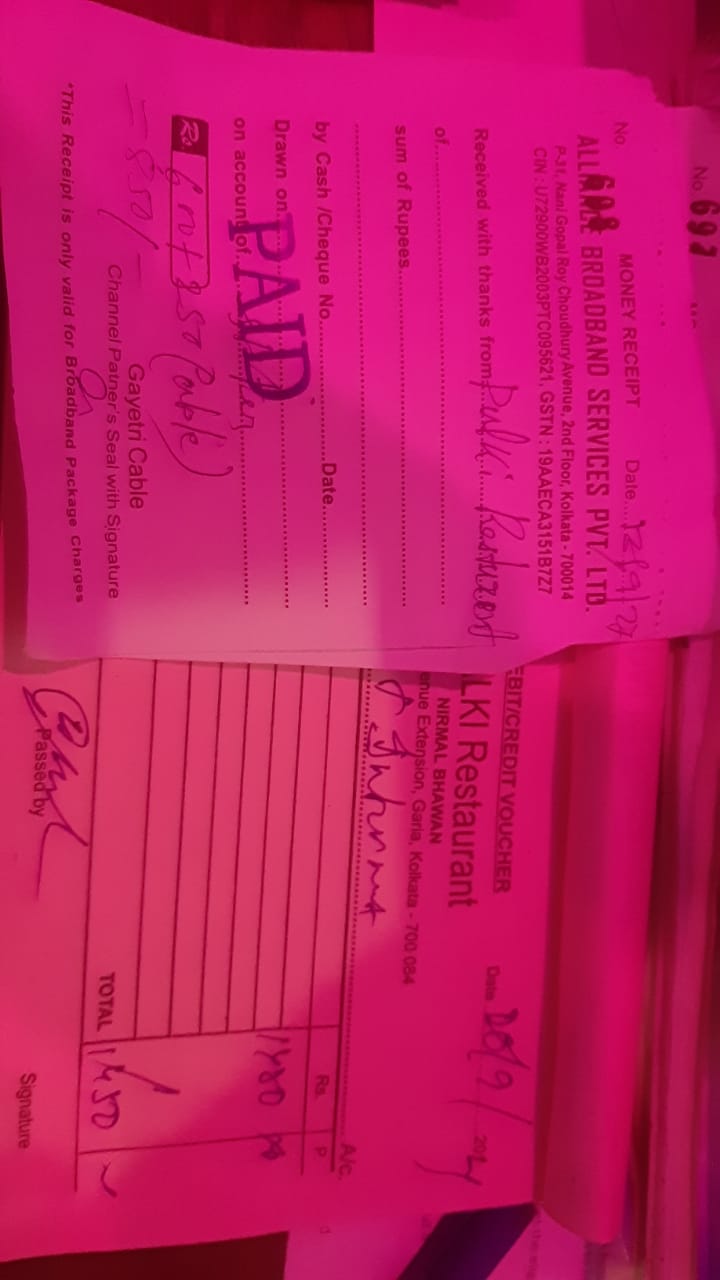 No 697
No 698 MONEY RECEIPT Date 12/9/24
ALLIANCE BROADBAND SERVICES PVT. LTD.
P-31, Nani Gopal Roy Choudhury Avenue, 2nd Floor, Kolkata - 700014
CIN : U72900WB2003PTC095621, GSTN : 19AAECA3151B7Z7
Received with thanks from Pulki
of
sum of Rupees
by Cash /Cheque No. Date
Drawn on
on account of
PAID
Rs 600+250 (Cable)
= 850/-
Gayetri Cable
Channel Patner's Seal with Signature
*This Receipt is only valid for Broadband Package Charges
EBIT/CREDIT VOUCHER
LKI Restaurant
NIRMAL BHAWAN
enue Extension, Garia, Kolkata - 700 084
Date 2024
A/c.
Rs. P
TOTAL
Passed by
Signature